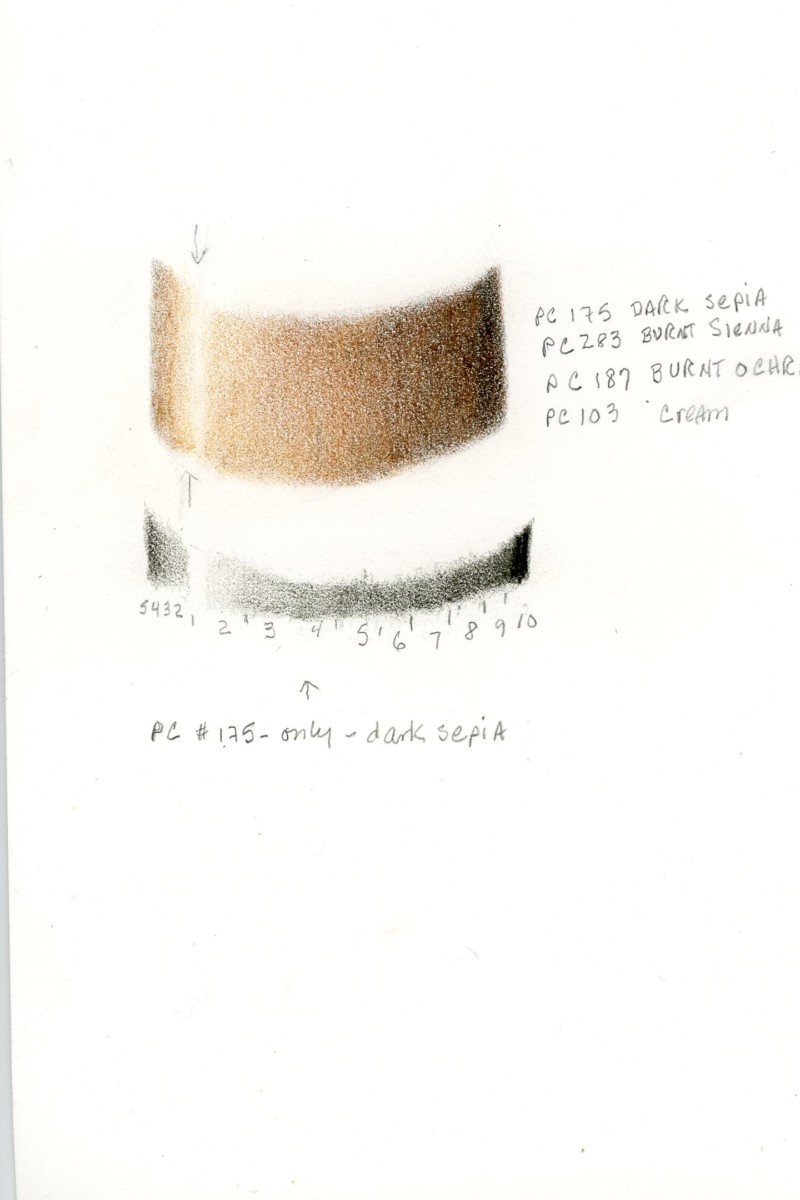 PC 175 DARK sepiA
PC 283 BURNT SIENNA
PC 187 BURNT OCHR
PC 103 CreAm
5432 1 2 3 4 5 6 7 8 9 10
PC # 175- only - dark sepiA